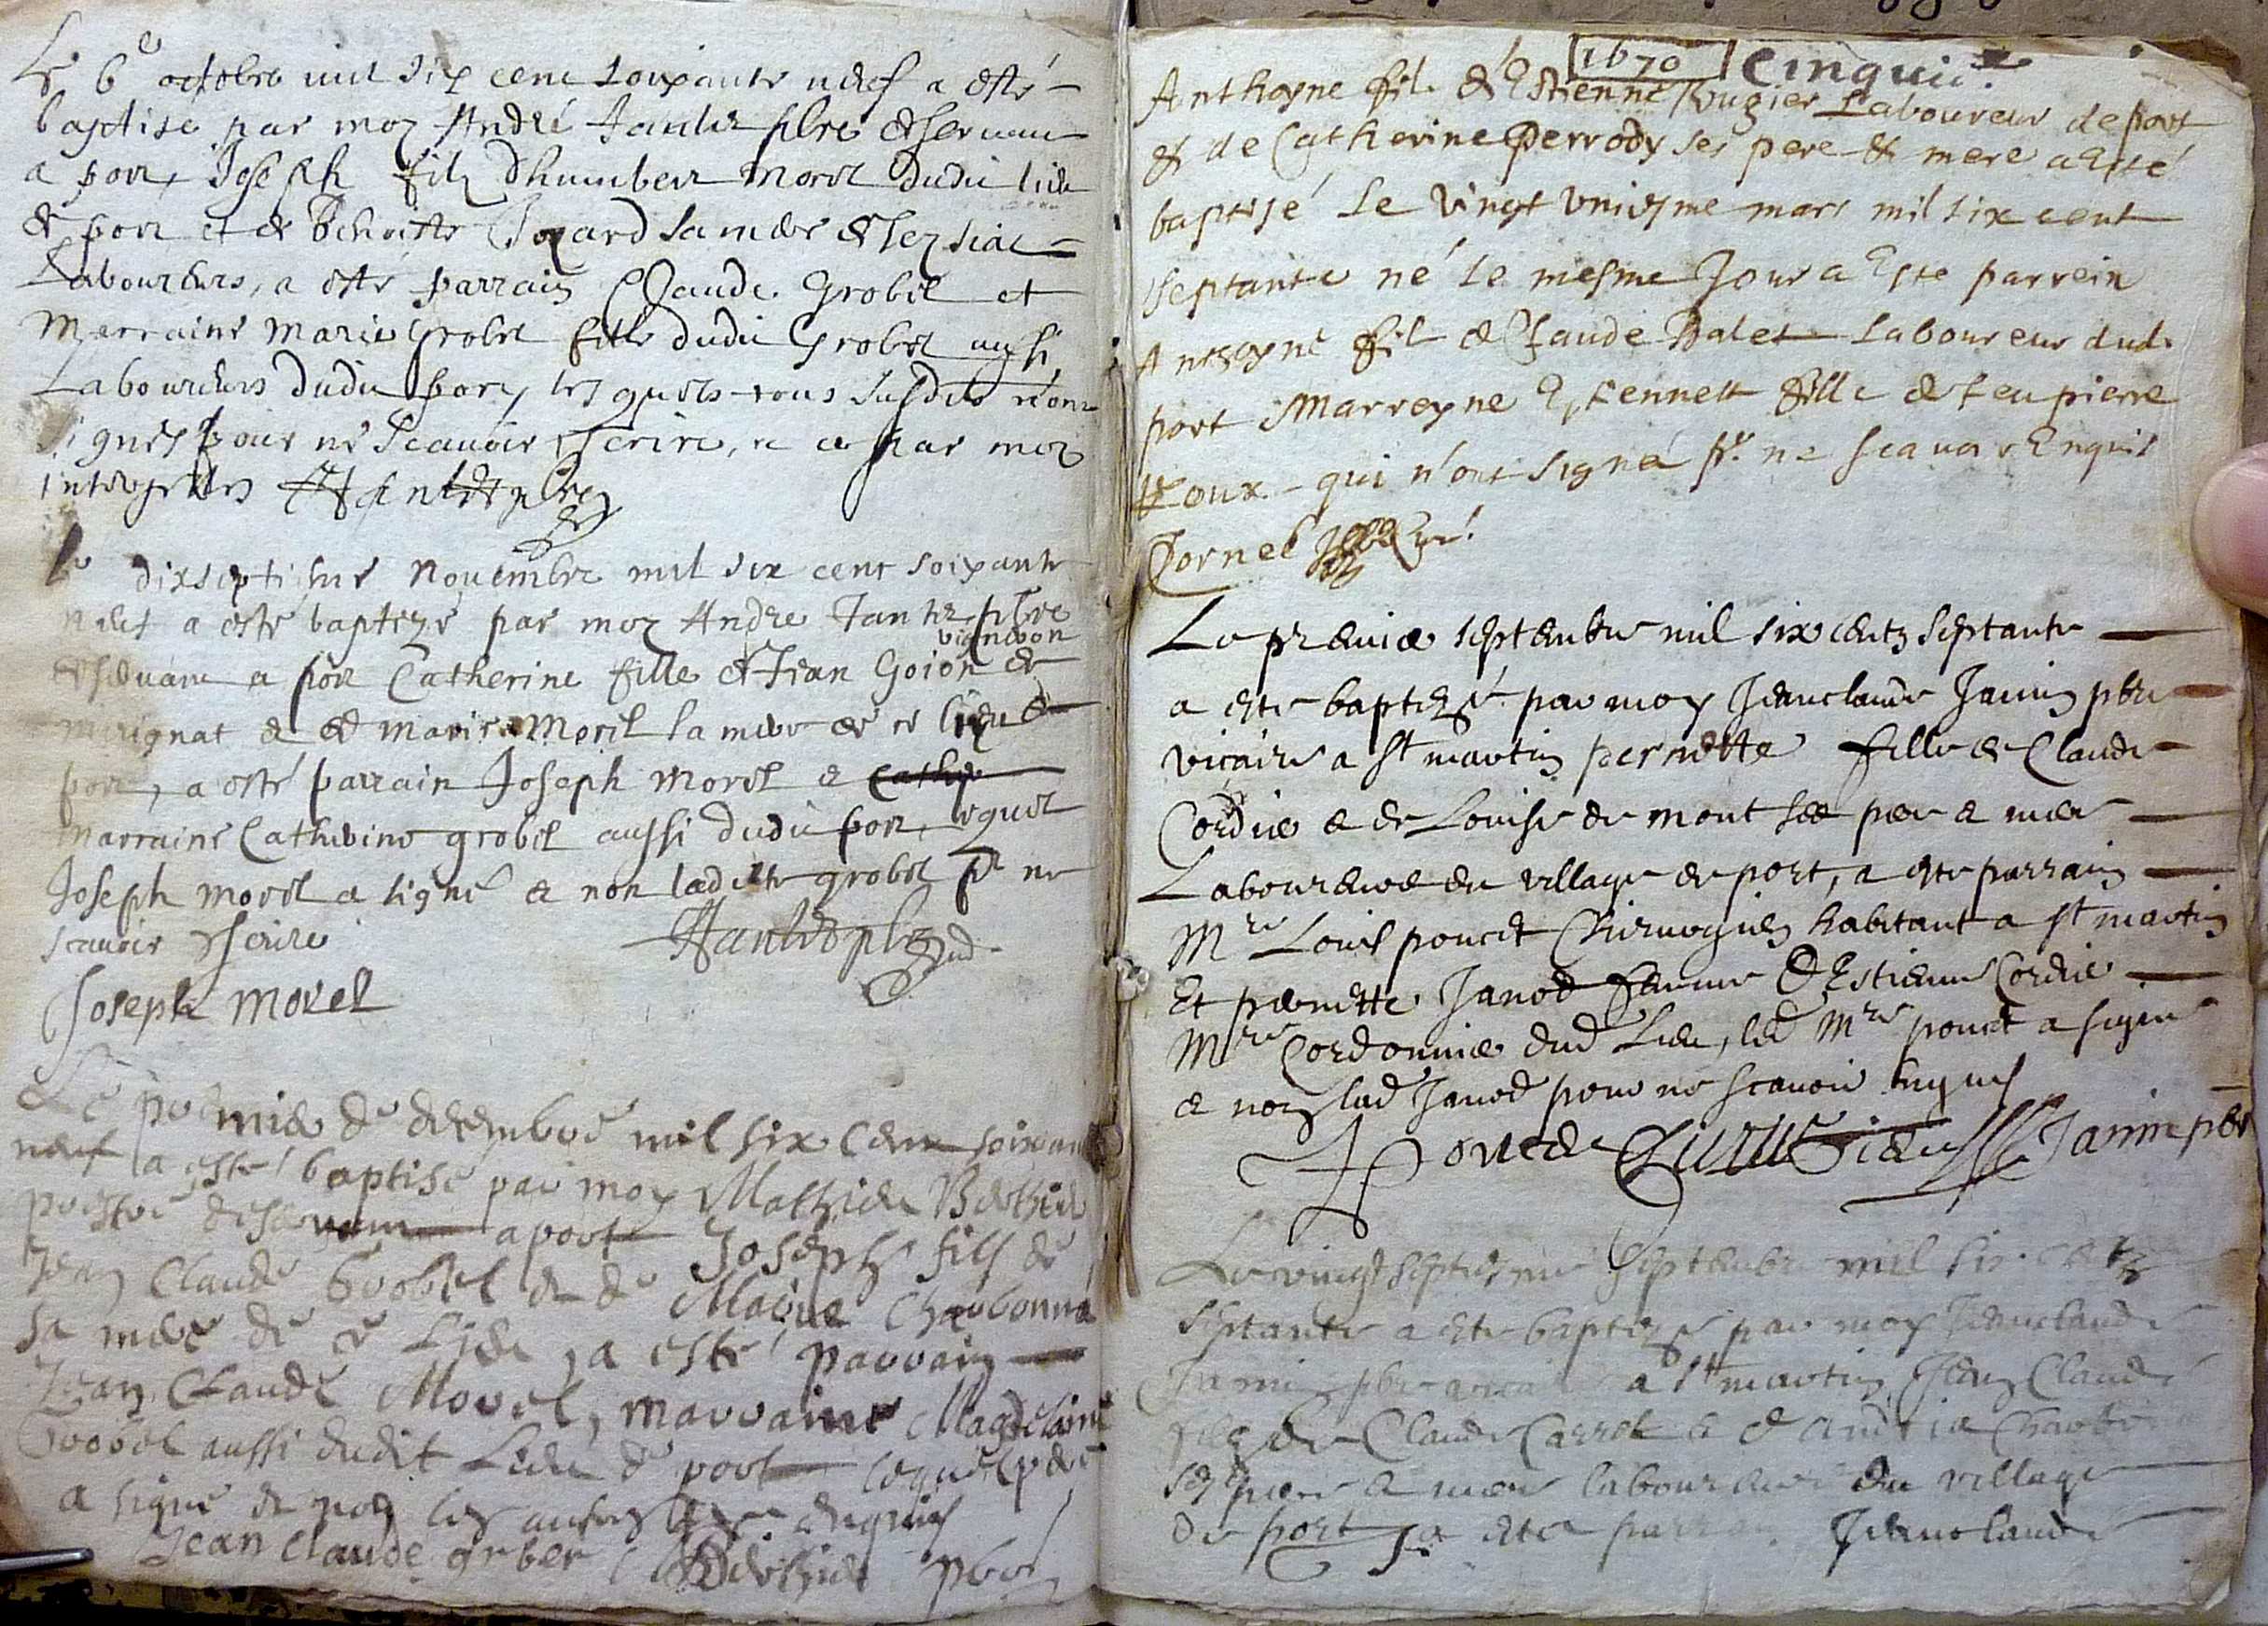 Le 6e octobre mil six cent soixante neuf a esté
baptisé par moy André Tantet pbre desservant
a port, Joseph filz d'humbert Morel dudit lieu
de port et de Benoiste Joyard sa mere
Laboureurs, a esté parrain Claude Grobel et
Marraine Marie Grobel fille dudit Grobel aussi
Laboureurs dudit port, lesquels tous susdits n'ont
signés pour ne scavoir escrire, a ce par moy
interpellés Tantet pbre
Le dixseptiesme Novembre mil six cent soixante
neuf a esté baptezé par moy Andre Tantet pbre
vigneron
desservant a port Catherine fille de Jean Goion de
mirignat & de Marie Morel sa mere de ce lieu de
port, a esté parrain Joseph Morel & Cathe
marraine Catherine grobel aussi dudit port, lequel
Joseph morel a signé & non ladite grobel pr ne
scavoir escrire Tantet pbre
Joseph Morel
Le premier de decembre mil six cent soixante
neuf a esté baptisé par moy Mathieu Berthet
prestre desservant a port Joseph fils de
Jean Claude Grobel & de Marie Charbonna
sa mere de ce Lieu, a esté parrain
Jean Claude Morel, marraine Magdelaine
Grobel aussi dudit Lieu de port lequel pere
a signé & non les autres enquis
Jean Claude grber Berthet pbre
1670 Cinquie.
Anthoyne fil. d'Estienne Rugier Laboureur de port
& de Catherine Perrody ses pere & mere a Esté
baptisé le vingt uniesme mars mil six cent
septante né le mesme Jour a Este parrein
Anthoyne fil de Claude Balet Laboureur dud.
port Marreyne Estiennette fille de feu pierre
Roux qui n'ont signé pr. ne scavoir Enquis
Cornel
Le premier septembre mil six centz septante
a ete baptezé par moy Jean claude Janin pbre
vicaire a St martin pernette fille de Claude
Cordier & de Louise de mont ses pere & mere
Laboureurs du village de port, a ete parrain
Mre Louis poncet Chirurgien habitant a st martin
Et pernette Janod femme D'Estienne Cordier
Mre Cordonnier dud Lieu, led Mre poncet a signé
& non lad Janod pour ne scavoir enquis
Poncet Chirurgien Janin pbre
Le vingt septiesme septembre mil six centz
septante a ete baptezé par moy Jean claude
Janin pbre vicaire a St martin Jean Claude
filz de Claude Carrel & d'Andrea Charbo
ses pere & mere laboureurs du village
De port, a ete parrain Jean claude